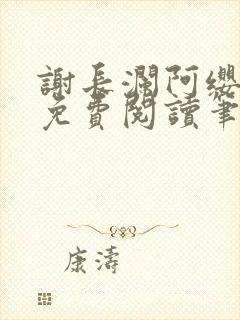 謝長瀾阿纓
免費閱讀筆
康濤